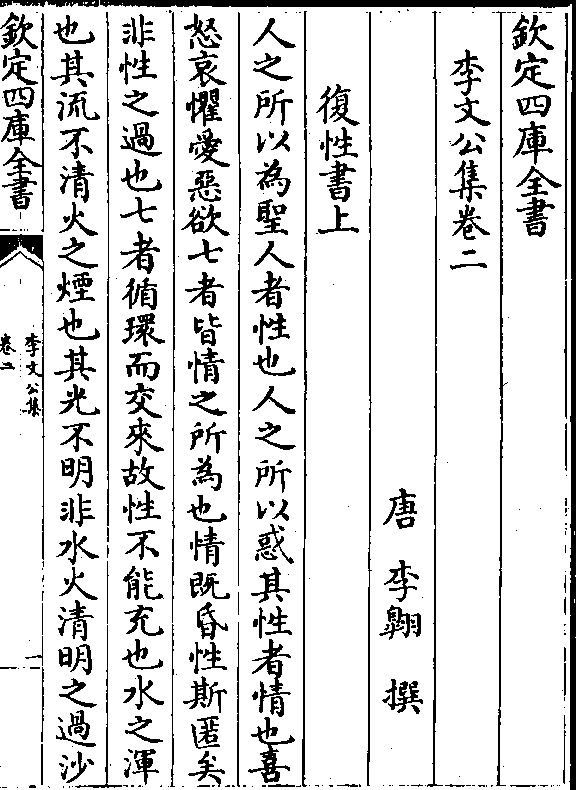 欽定四庫全書
李文公集卷二
唐 李翺 撰
復性書上
人之所以為聖人者性也人之所以惑其性者情也喜
怒哀懼愛惡欲七者皆情之所為也情既昏性斯匿矣
非性之過也七者循環而交來故性不能充也水之渾
也其流不清火之煙也其光不明非水火清明之過沙
欽定四庫全書
李文公集
卷二
一